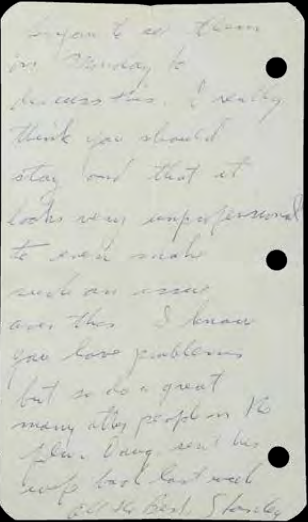 to see them
on Monday to
discuss this. I really
think you should
stay and that it
looks very unprofessional
to even make
such an issue
over this I know
you have problems
but so do a great
many other people on the
film Doug sent his
wife back last week
All the Best Stanley